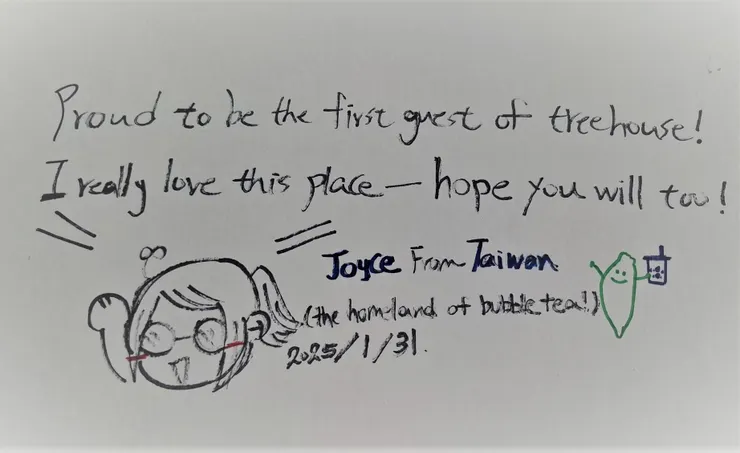 Proud to be the first guest of treehouse!
I really love this place — hope you will too!
Joyce From Taiwan
(the homeland of bubble tea!)
2025/1/31.